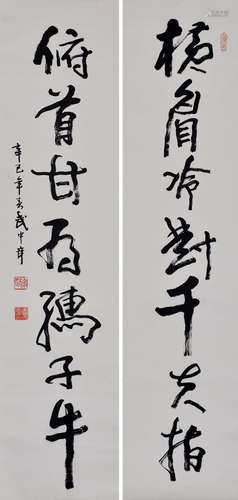 横眉冷对千夫指
俯首甘为孺子牛
辛巳年春武中奇